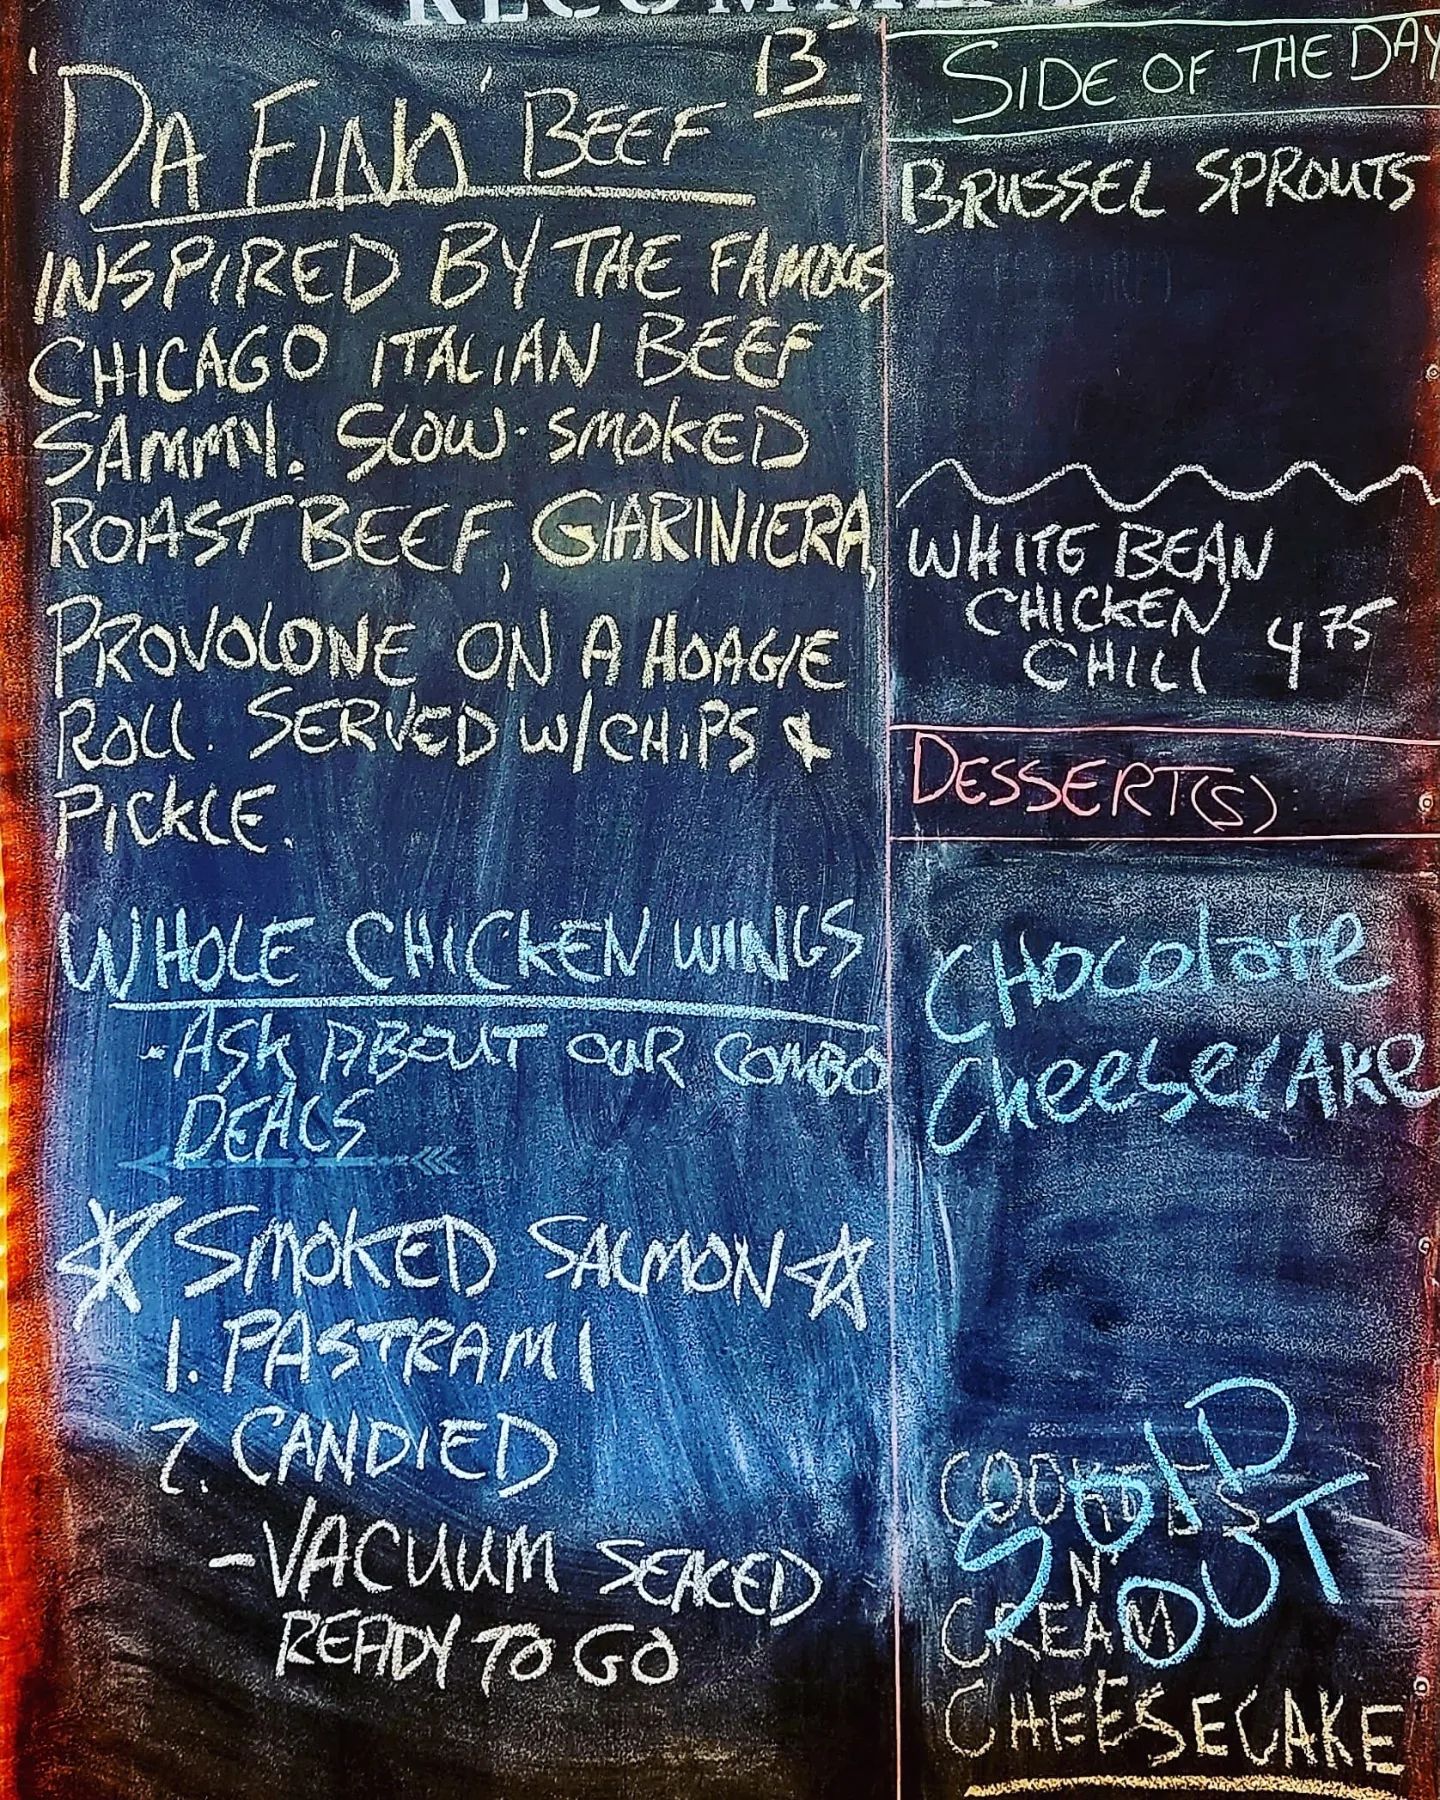 RECOMMEND
'DA FINO' BEEF 13
INSPIRED BY THE FAMOUS
CHICAGO ITALIAN BEEF
SAMMY. SLOW-SMOKED
ROAST BEEF, GIARINIERA,
PROVOLONE ON A HOAGIE
ROLL. SERVED W/CHIPS &
PICKLE.
WHOLE CHICKEN WINGS
-ASK ABOUT OUR COMBO
DEALS
SMOKED SALMON
1. PASTRAMI
2. CANDIED
-VACUUM SEALED
READY TO GO
SIDE OF THE DAY
BRUSSEL SPROUTS
WHITE BEAN
CHICKEN
CHILI 4 75
DESSERT(S)
CHocolate
CheeseCAKe
COOKIES
N'
CREAM
CHEESECAKE
SOLD
OUT